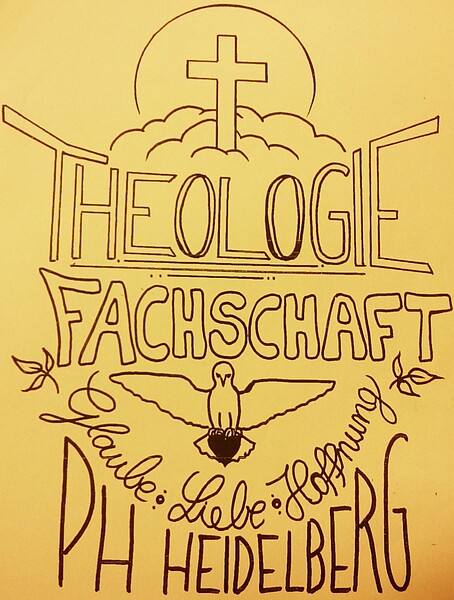 THEOLOGIE
FACHSCHAFT
Glaube : Liebe : Hoffnung
PH HEIDELBERG